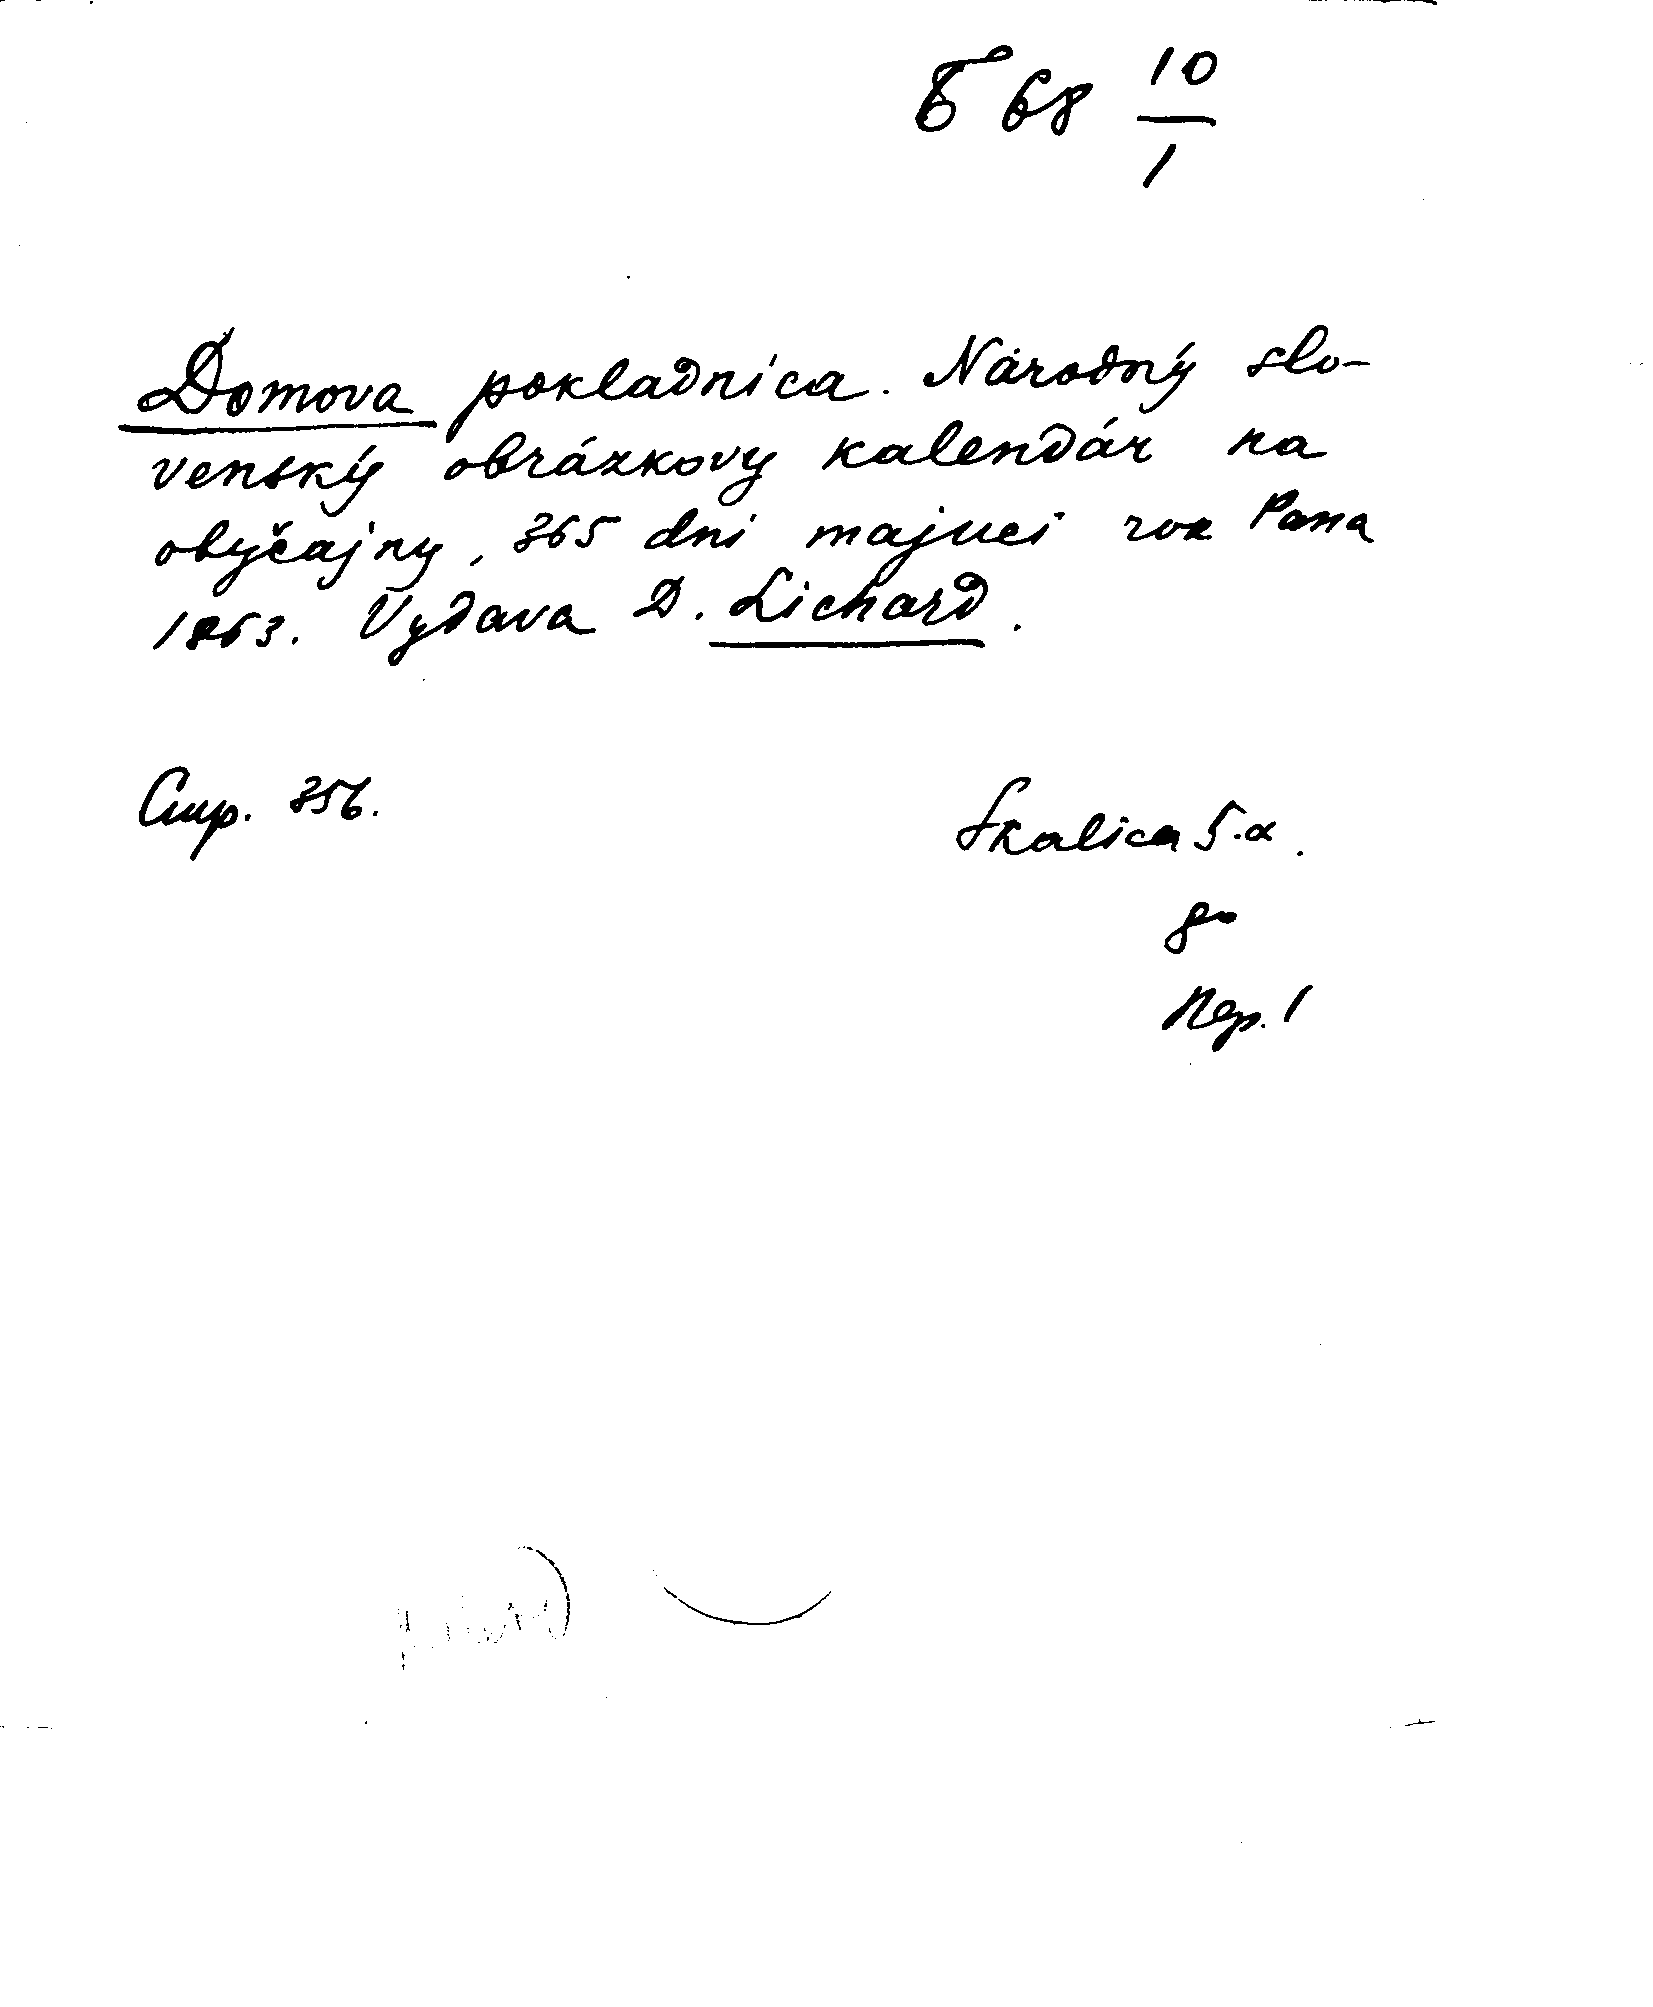 Б 68 10/1
Domova pokladnica. Národný slo-
venský obrázkovy kalendár na
obyčajny, 365 dni majuci rok Pana
1863. Vydava D. Lichard.
Стр. 356.
Skalica S.a.
8º
Пер. 1